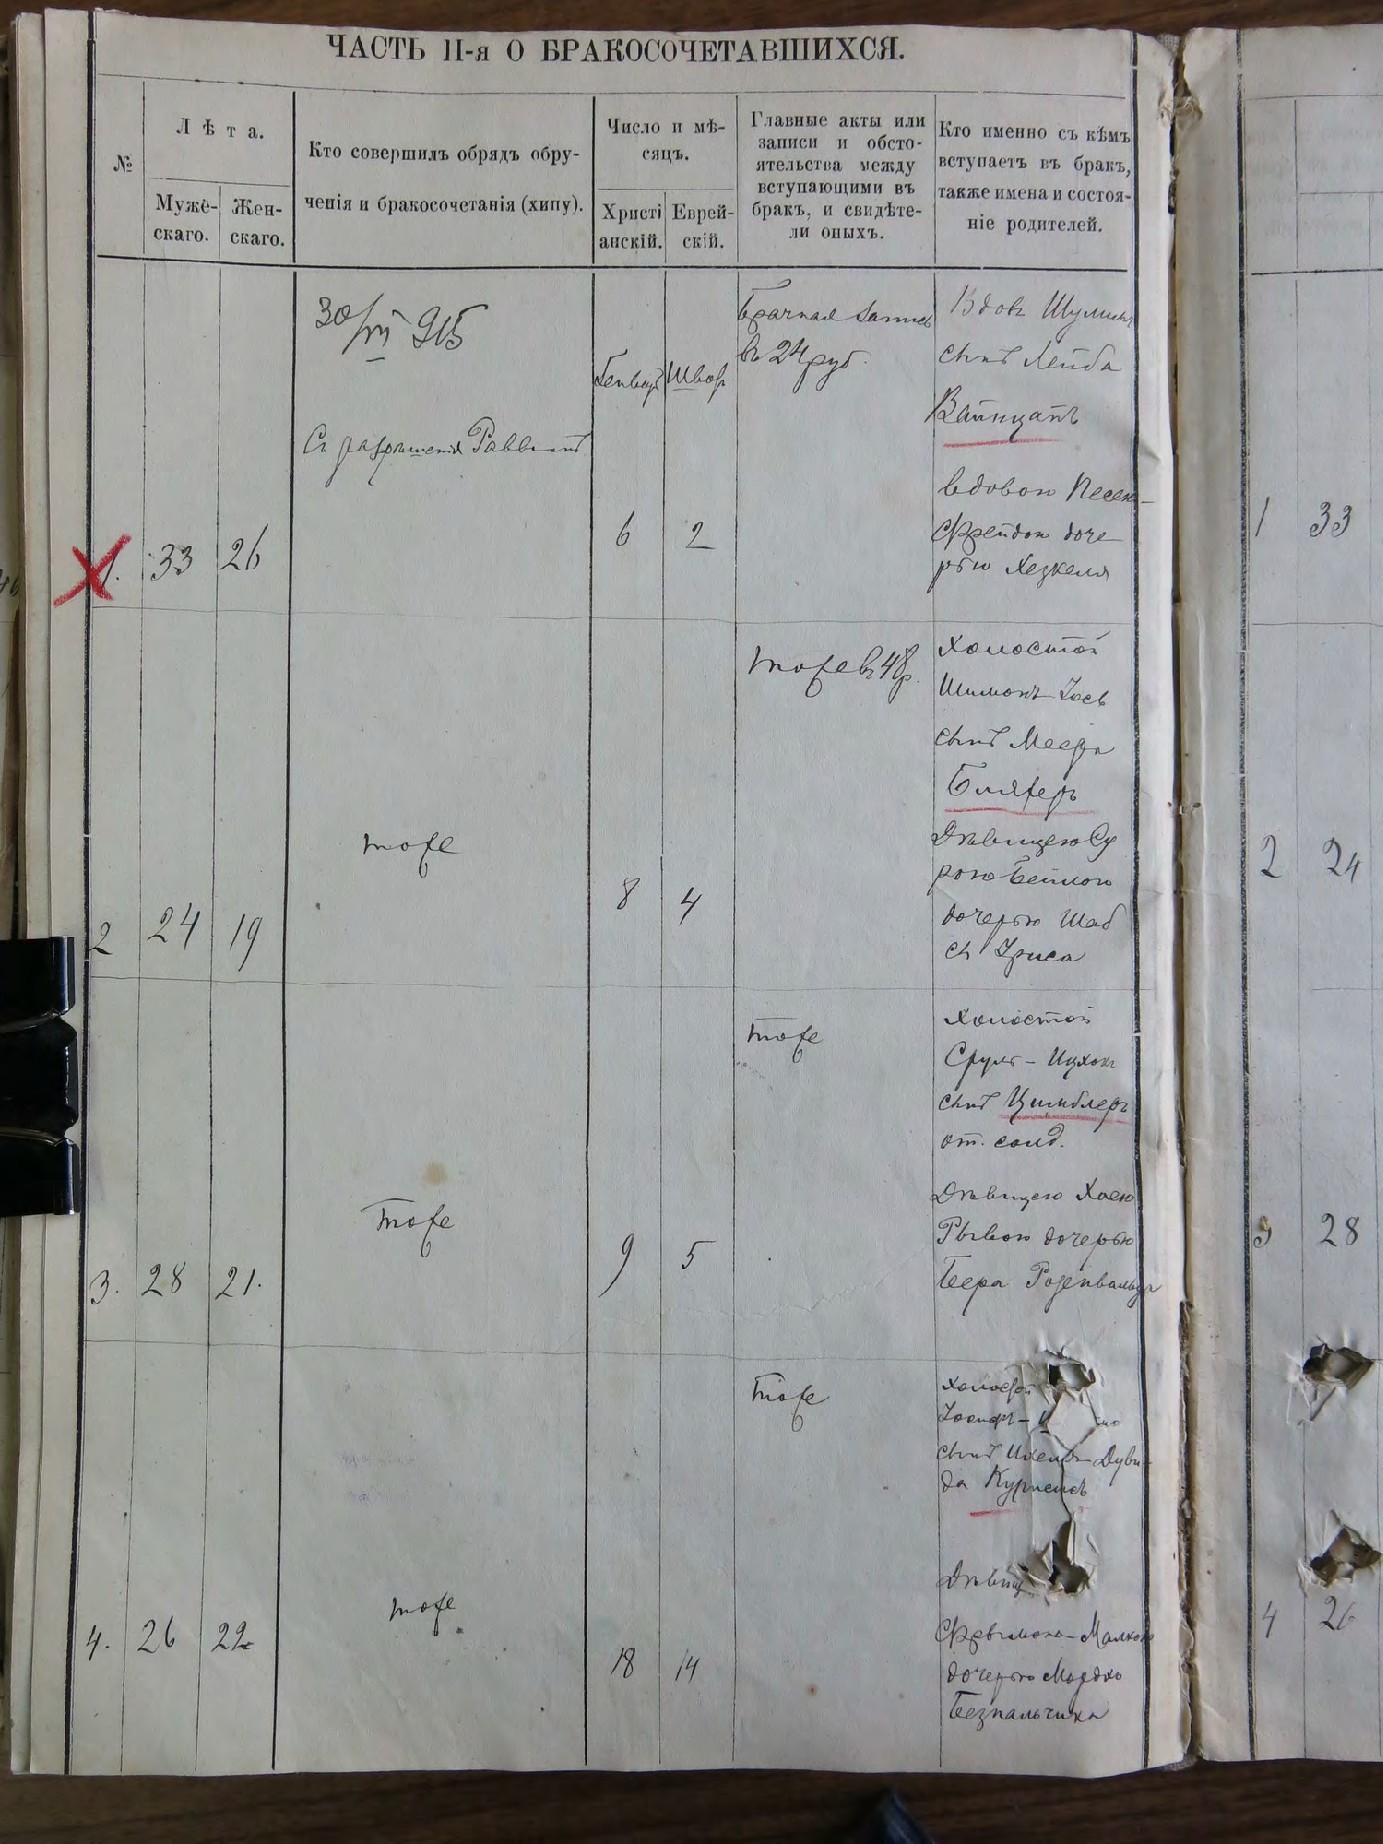 ЧАСТЬ II-я О БРАКОСОЧЕТАВШИХСЯ.
№
Лѣта.
Муже-
скаго.
Жен-
скаго.
Кто совершилъ обрядъ обру-
ченія и бракосочетанія (хипу).
Число и мѣ-
сяцъ.
Христі
анскій.
Еврей-
скій.
Главные акты или
записи и обсто-
ятельства между
вступающими въ
бракъ, и свидѣте-
ли оныхъ.
Кто именно съ кѣмъ
вступаетъ въ бракъ,
также имена и состоя-
ніе родителей.
1.
33
26
30/VII 915
Съ разрѣшенія Раввинъ
Генварь
6
Шват
2
Брачная запись
въ 24 руб.
Вдовъ Шулимъ
сынъ Лейба
Вайнцанъ
вдовою Песею-
Фрейдою доче
рью Хезкеля
2
24
19
тоже
8
4
тоже въ 48 р.
Холостой
Шимонъ-Іось
сынъ Меера
Бляхеръ
Дѣвицею Су
рою-Бейлою
дочерью Шаб
са Криса
3.
28
21.
Тоже
9
5
Тоже
Холостой
Сруль-Ицхокъ
сынъ Цимблеръ
от. солд.
Дѣвицею Хаею
Рывою дочерью
Бера Розенвальда
4.
26
22
тоже
18
14
Тоже
холостой
Іосифъ-
сынъ Дуви-
да
Дѣвиц
Малкою
дочерью Мордко
Безпальчика
1
33
2
24
3
28
4
26